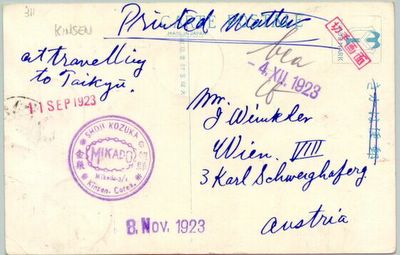 311
KINSEN
Printed Matter
at travelling
to Taikyu.
11 SEP 1923
SHOJI KOZUKA
MIKADO
Kinsen. Corea.
8. Nov. 1923
-4.XII.1923
切手画面
Mr.
J Winkler
Wien. VIII
3 Karl Schweighoferg
Austria